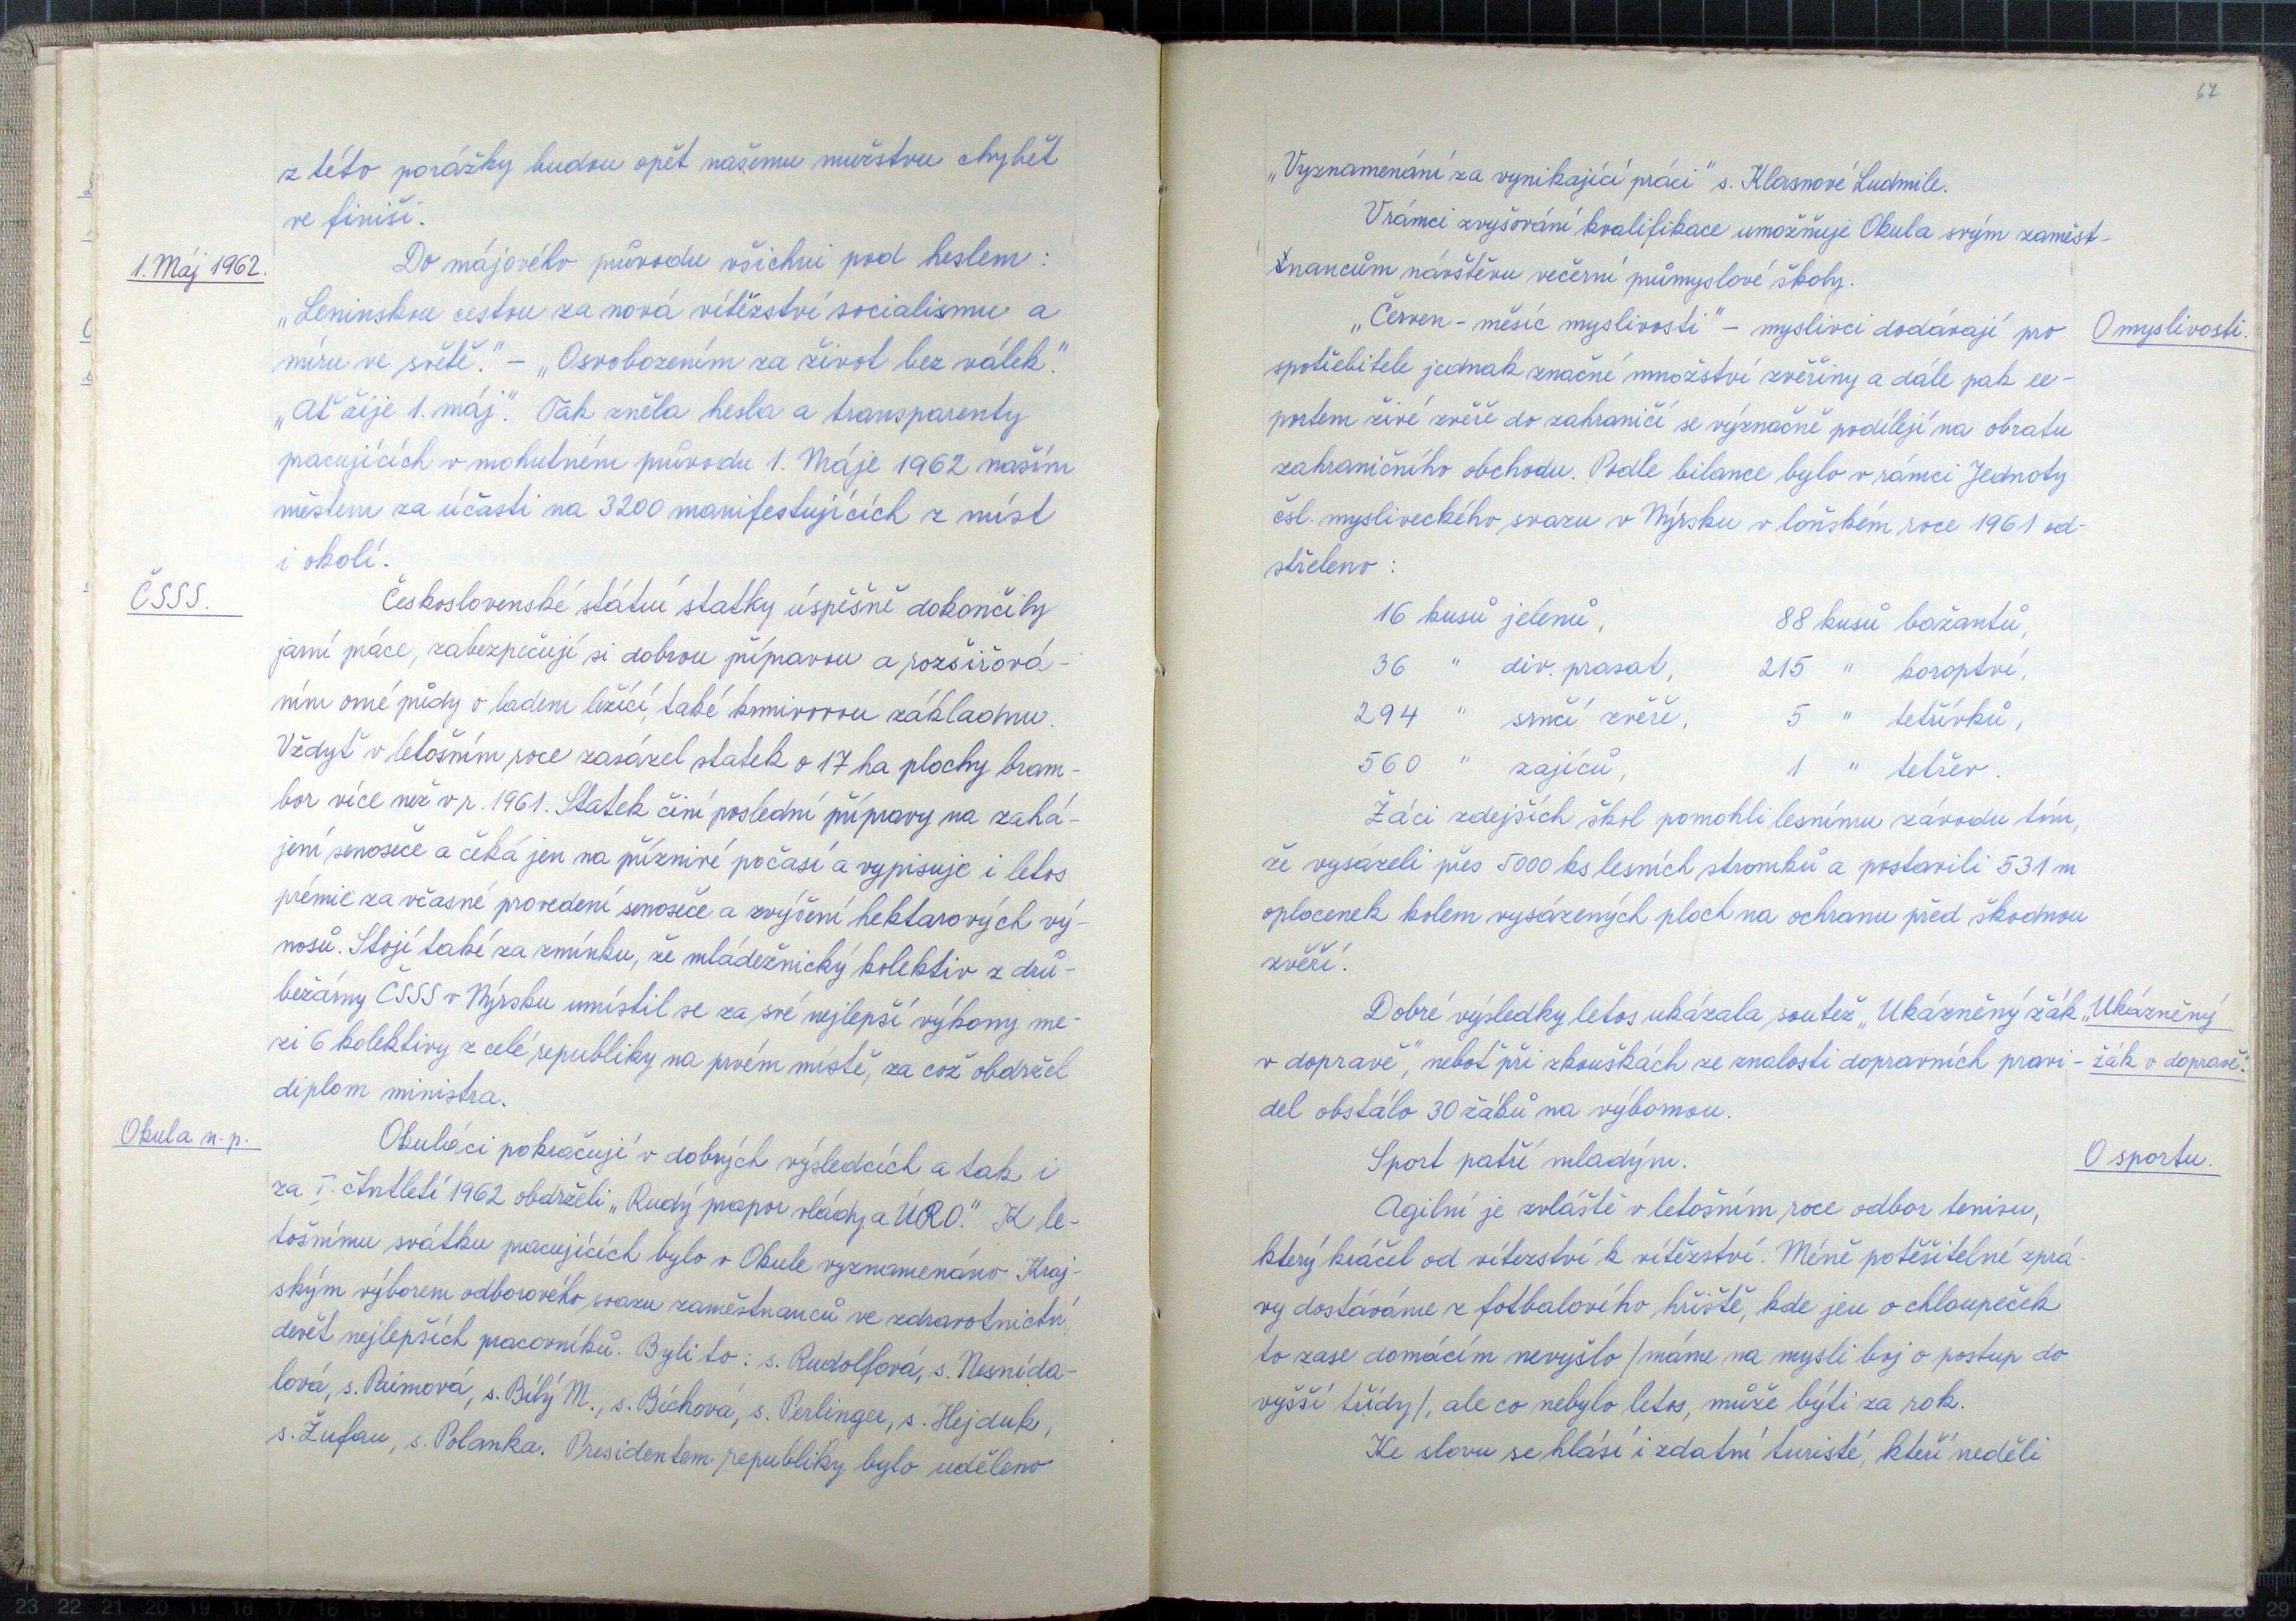 z této porážky budou opět našemu mužstvu chybět
ve finiši.
1. Máj 1962.
Do májového průvodu všichni pod heslem:
„Leninskou cestou za nová vítězství socialismu a
míru ve světě." – „Osvobozením za život bez válek."
„Ať žije 1. máj". Tak zněla hesla a transparenty
pracujících v mohutném průvodu 1. Máje 1962 naším
městem za účasti na 3200 manifestujících z míst
i okolí.
ČSSS.
Československé státní statky úspěšně dokončily
jarní práce, zabezpečují si dobrou přípravou a rozšiřová-
ním orné půdy o ladem ležící, také krmivovou základnu.
Vždyť v letošním roce zasázel statek o 17 ha plochy bram-
bor více než v r. 1961. Statek činí poslední přípravy na zahá-
jení senoseče a čeká jen na příznivé počasí a vypisuje i letos
prémie za včasné provedení senoseče a zvýšení hektarových vý-
nosů. Stojí také za zmínku, že mládežnický kolektiv z drů-
bežárny ČSSS v Nýrsku umístil se za své nejlepší výkony me-
zi 6 kolektivy z celé republiky na prvém místě, za což obdržel
diplom ministra.
Okula n. p.
Okuláci pokračují v dobrých výsledcích a tak i
za I. čtvrtletí 1962 obdrželi „Rudý prapor vlády a ÚRO." K le-
tošnímu svátku pracujících bylo v Okule vyznamenáno Kraj-
ským výborem odborového svazu zaměstnanců ve zdravotnictví
devět nejlepších pracovníků. Byli to: s. Rudolfová, s. Nesnída-
lová, s. Paimová, s. Bílý M., s. Bíchová, s. Perlinger, s. Hejduk,
s. Žufan, s. Polanka. Presidentem republiky bylo uděleno
67
„Vyznamenání za vynikající práci" s. Klasnové Ludmile.
V rámci zvyšování kvalifikace umožňuje Okula svým zaměst-
nancům návštěvu večerní průmyslové školy.
„Červen - měsíc myslivosti" – myslivci dodávají pro
O myslivosti.
spotřebitele jednak značné množství zvěřiny a dále pak ex-
portem živé zvěře do zahraničí se význačně podílejí na obratu
zahraničního obchodu. Podle bilance bylo v rámci Jednoty
čsl. mysliveckého svazu v Nýrsku v loňském roce 1961 od-
střeleno:
16 kusů jelenů, 88 kusů bažantů,
36 " div. prasat, 215 " koroptví,
294 " srnčí zvěře, 5 " tetřívků,
560 " zajíců, 1 " tetřev.
Žáci zdejších škol pomohli lesnímu závodu tím,
že vysázeli přes 5000 ks lesních stromků a postavili 531 m
oplocenek kolem vysázených ploch na ochranu před škodnou
zvěří.
Dobré výsledky letos ukázala soutěž „Ukázněný žák
„Ukázněný
v dopravě", neboť při zkouškách ze znalosti dopravních pravi-
žák v dopravě."
del obstálo 30 žáků na výbornou.
Sport patří mladým.
O sportu.
Agilní je zvláště v letošním roce odbor tenisu,
který kráčel od vítězství k vítězství. Méně potěšitelné zprá-
vy dostáváme z fotbalového hřiště, kde jen o chloupeček
to zase domácím nevyšlo /máme na mysli boj o postup do
vyšší třídy/, ale co nebylo letos, může býti za rok.
Ke slovu se hlásí i zdatní turisté, kteří neděli